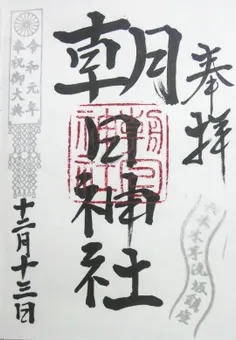 奉拝
朝日神社
朝日神社
六本木芋洗坂鎮座
令和元年
奉祝御大典
十二月十三日